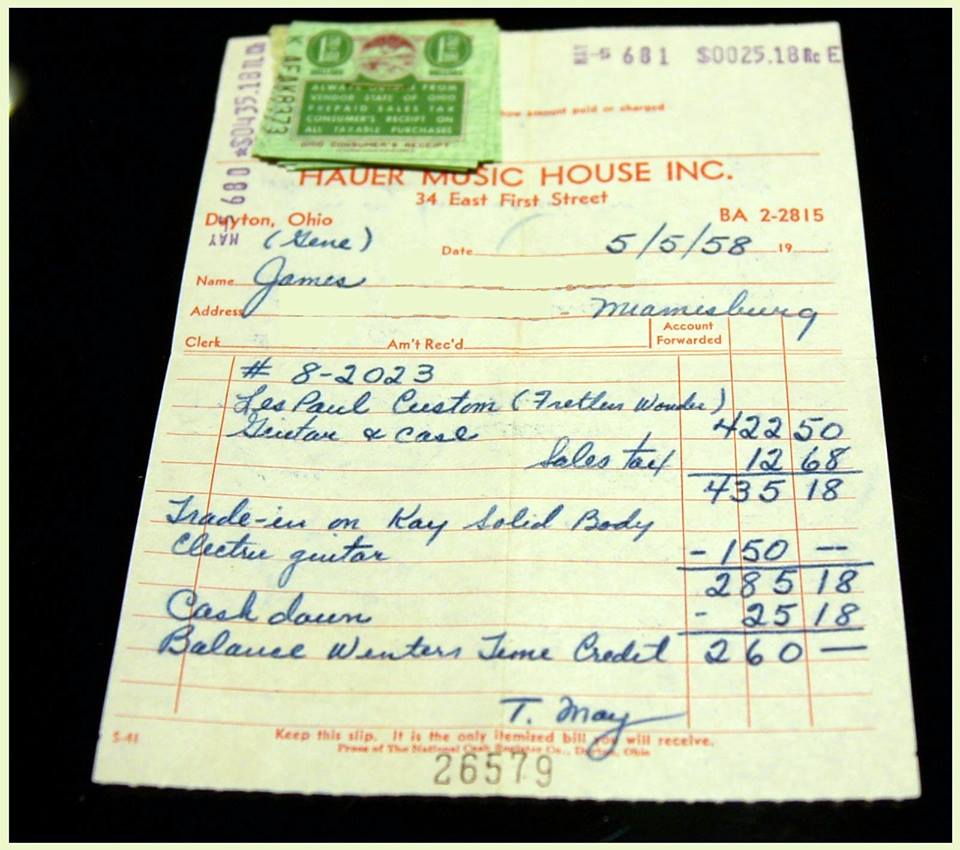 MAY -5 681 $0025.18 Rc E
MAY 5 680 *$0435.18
K AFAK8373
ALWAYS FROM
VENDOR STATE OF OHIO
PREPAID SALES TAX
CONSUMER'S RECEIPT ON
ALL TAXABLE PURCHASES
OHIO CONSUMER'S RECEIPT
how amount paid or charged
HAUER MUSIC HOUSE INC.
34 East First Street
Dayton, Ohio BA 2-2815
(Gene) Date 5/5/58 19
Name James
Address Miamisburg
Clerk Am't Rec'd Account Forwarded
# 8-2023
Les Paul Custom (Fretless Wonder)
Guitar & Case 422 50
Sales tax 12 68
435 18
Trade-in on Kay Solid Body
Electric guitar - 150 —
285 18
Cash down - 25 18
Balance Winters Time Credit 260 —
T. May
S-41 Keep this slip. It is the only itemized bill you will receive.
Press of The National Cash Register Co., Dayton, Ohio
26579